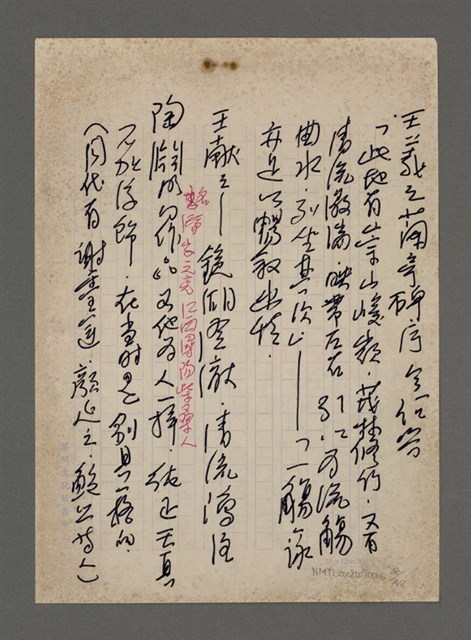 王羲之蘭亭碑序
「此地有崇山峻嶺.茂林修竹.又有
清流激湍.映帶左右 引以為流觴
曲水.列坐其次」——「一觴一詠
亦足以暢敘幽情.
王献之—鏡湖澄澈.清流瀉注
潛字元亮 江西潯陽柴桑人
陶淵明 又他為人一樣.純正天真
不加浮飾.在當時是別具一格的.
(同代有 謝靈運.顏延之.鮑照等人)
NMTL